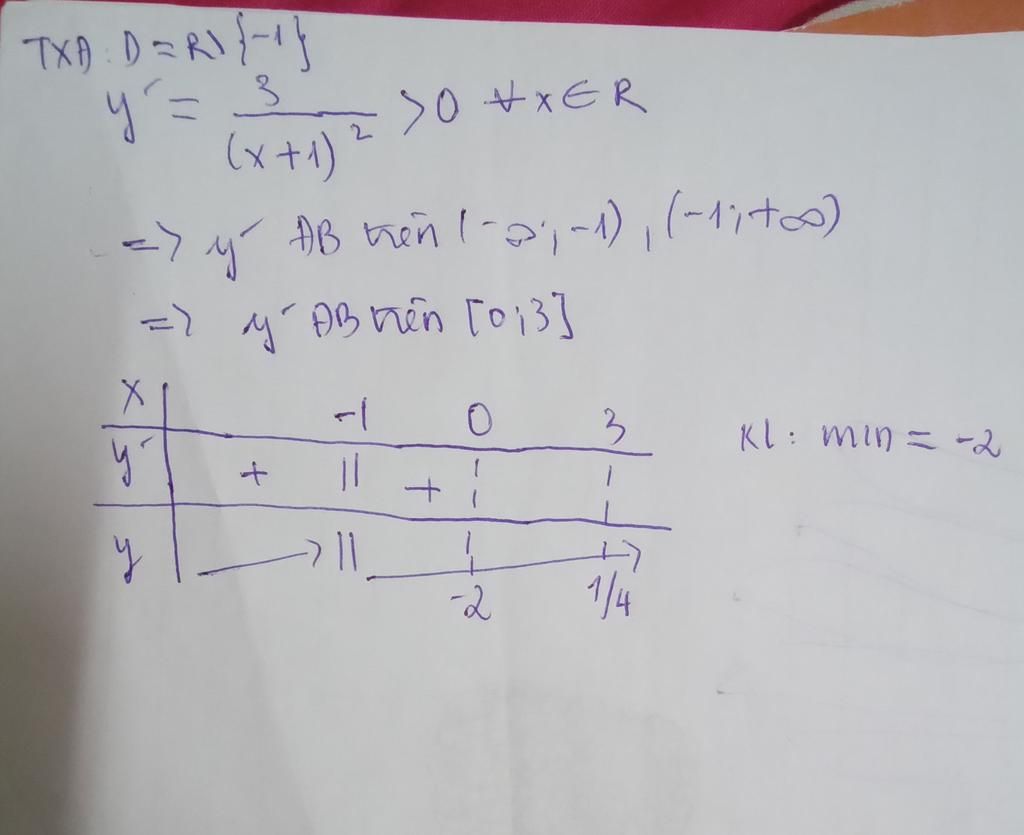 TXĐ: D = R \ {-1}
y' = 3/(x+1)² > 0 ∀x ∈ R
=> y' ĐB trên (-∞; -1), (-1; +∞)
=> y' ĐB trên [0; 3]
x -1 0 3
y' + || +
KL: min = -2
y ||
-2 1/4